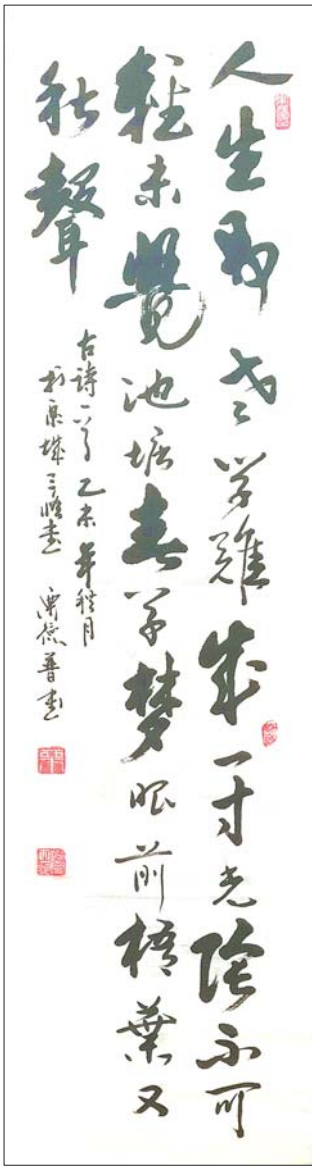 人生易老学難成一寸光陰不可
輕未覺池塘春草梦眼前梧葉又
秋聲
古詩一首 乙未年秋月
城三 德普書